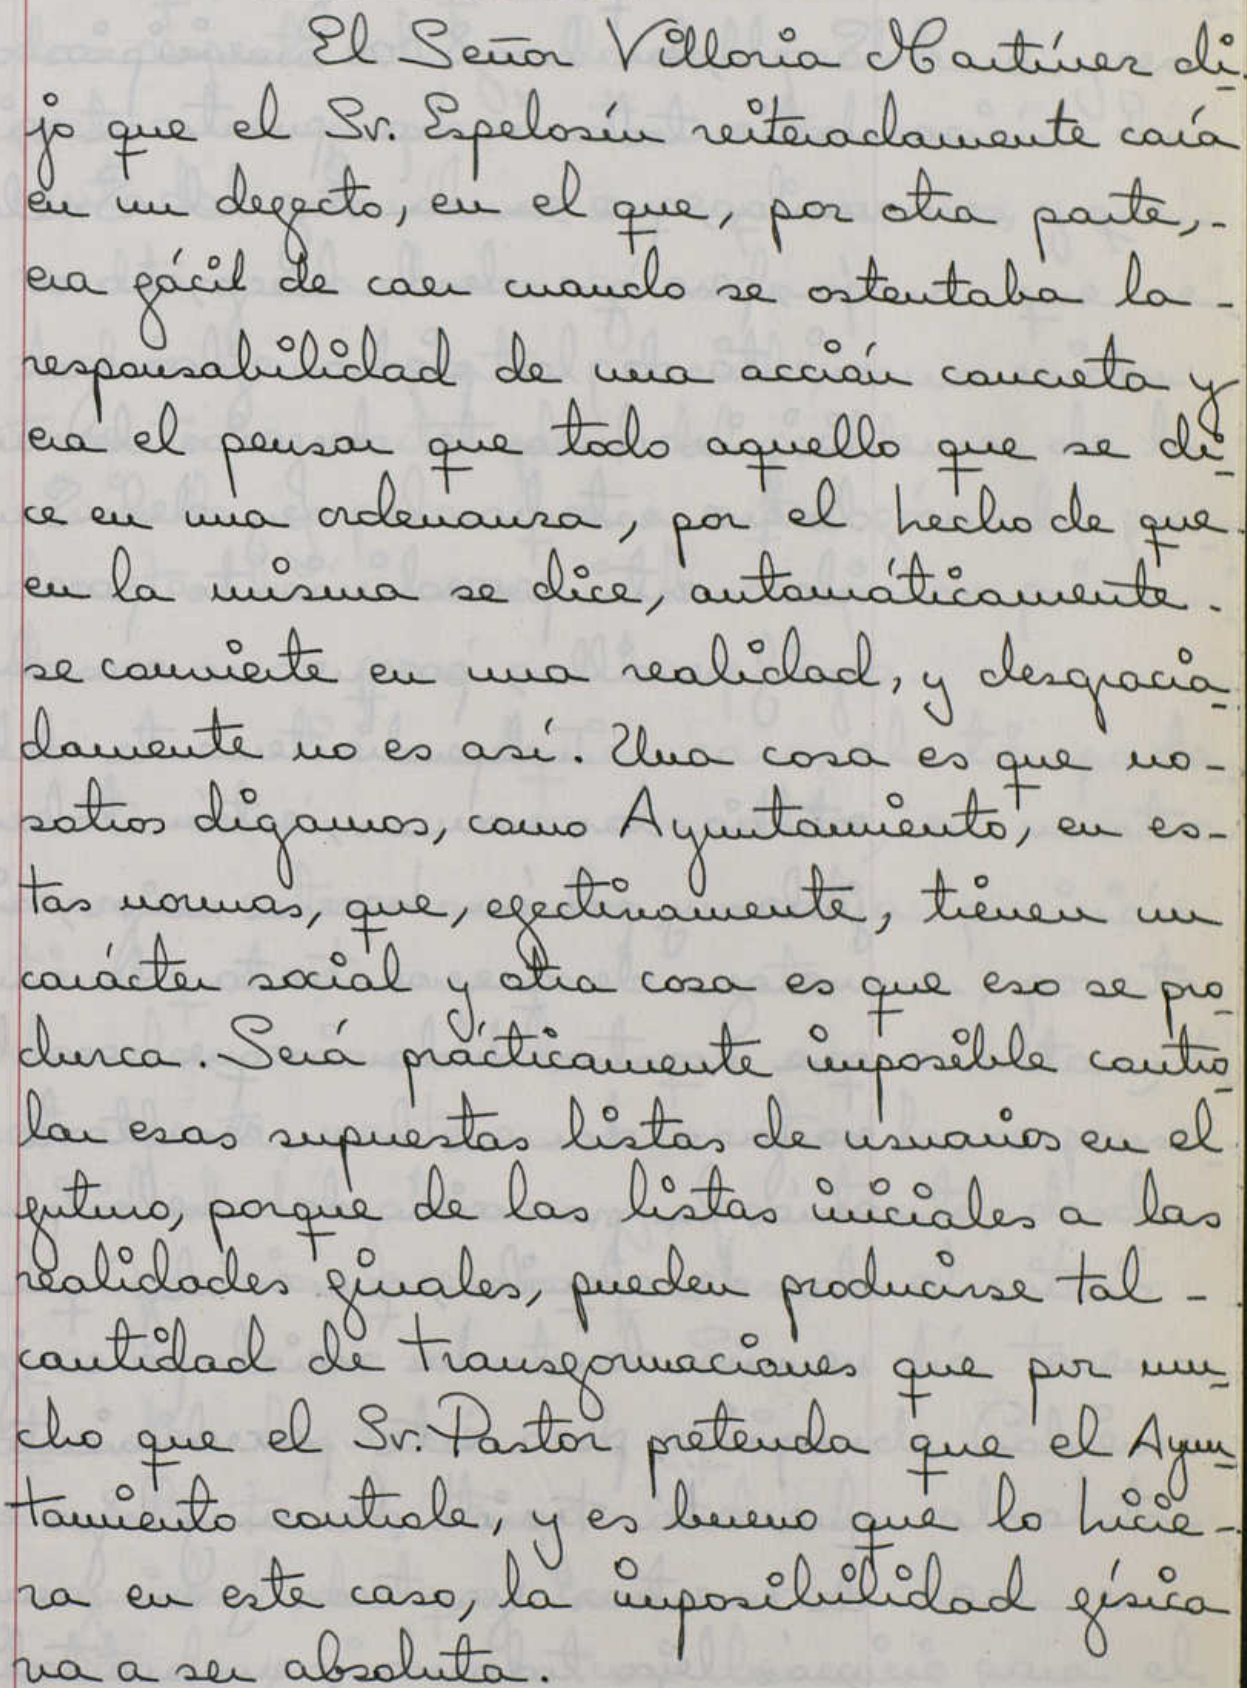 El Señor Villoria Martínez di-
jo que el Sr. Espelosín reiteradamente caía
en un defecto, en el que, por otra parte, -
era fácil de caer cuando se ostentaba la -
responsabilidad de una acción concreta y
era el pensar que todo aquello que se di-
ce en una ordenanza, por el hecho de que
en la misma se dice, automáticamente -
se convierte en una realidad, y desgracia-
damente no es así. Una cosa es que no-
sotros digamos, como Ayuntamiento, en es-
tas normas, que, efectivamente, tienen un
carácter social y otra cosa es que eso se pro-
duzca. Será prácticamente imposible contro-
lar esas supuestas listas de usuarios en el
futuro, porque de las listas iniciales a las
realidades finales, pueden producirse tal -
cantidad de transformaciones que por mu-
cho que el Sr. Pastor pretenda que el Ayun-
tamiento controle, y es bueno que lo hicie-
ra en este caso, la imposibilidad física
va a ser absoluta.